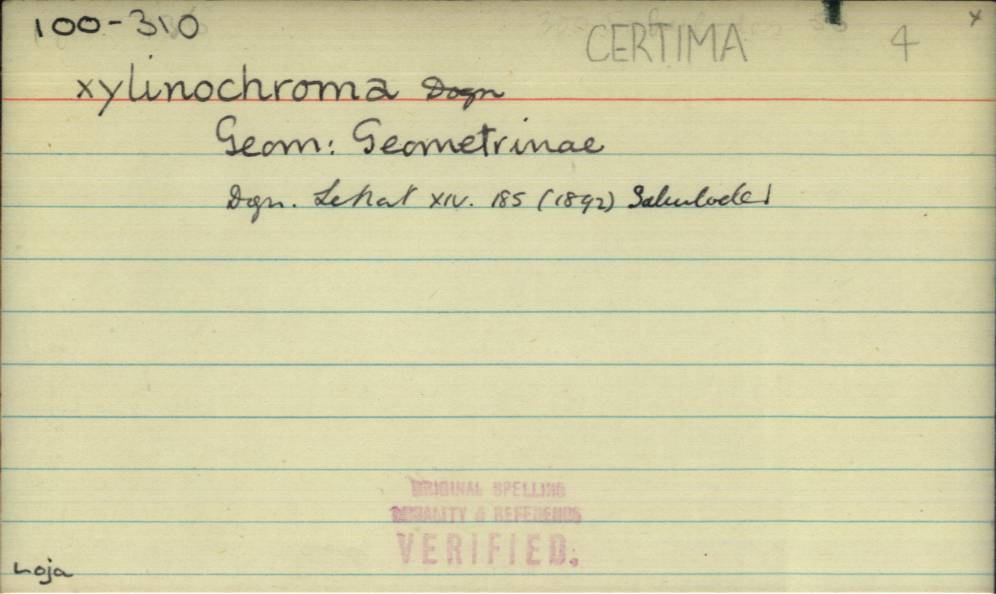 100-310
CERTIMA 4 x
xylinochroma Dogn
Geom: Geometrinae
Dgn. Le Nat XIV. 185 (1892) Sabulodes
ORIGINAL SPELLING
LOCALITY & REFERENCE
VERIFIED.
Loja